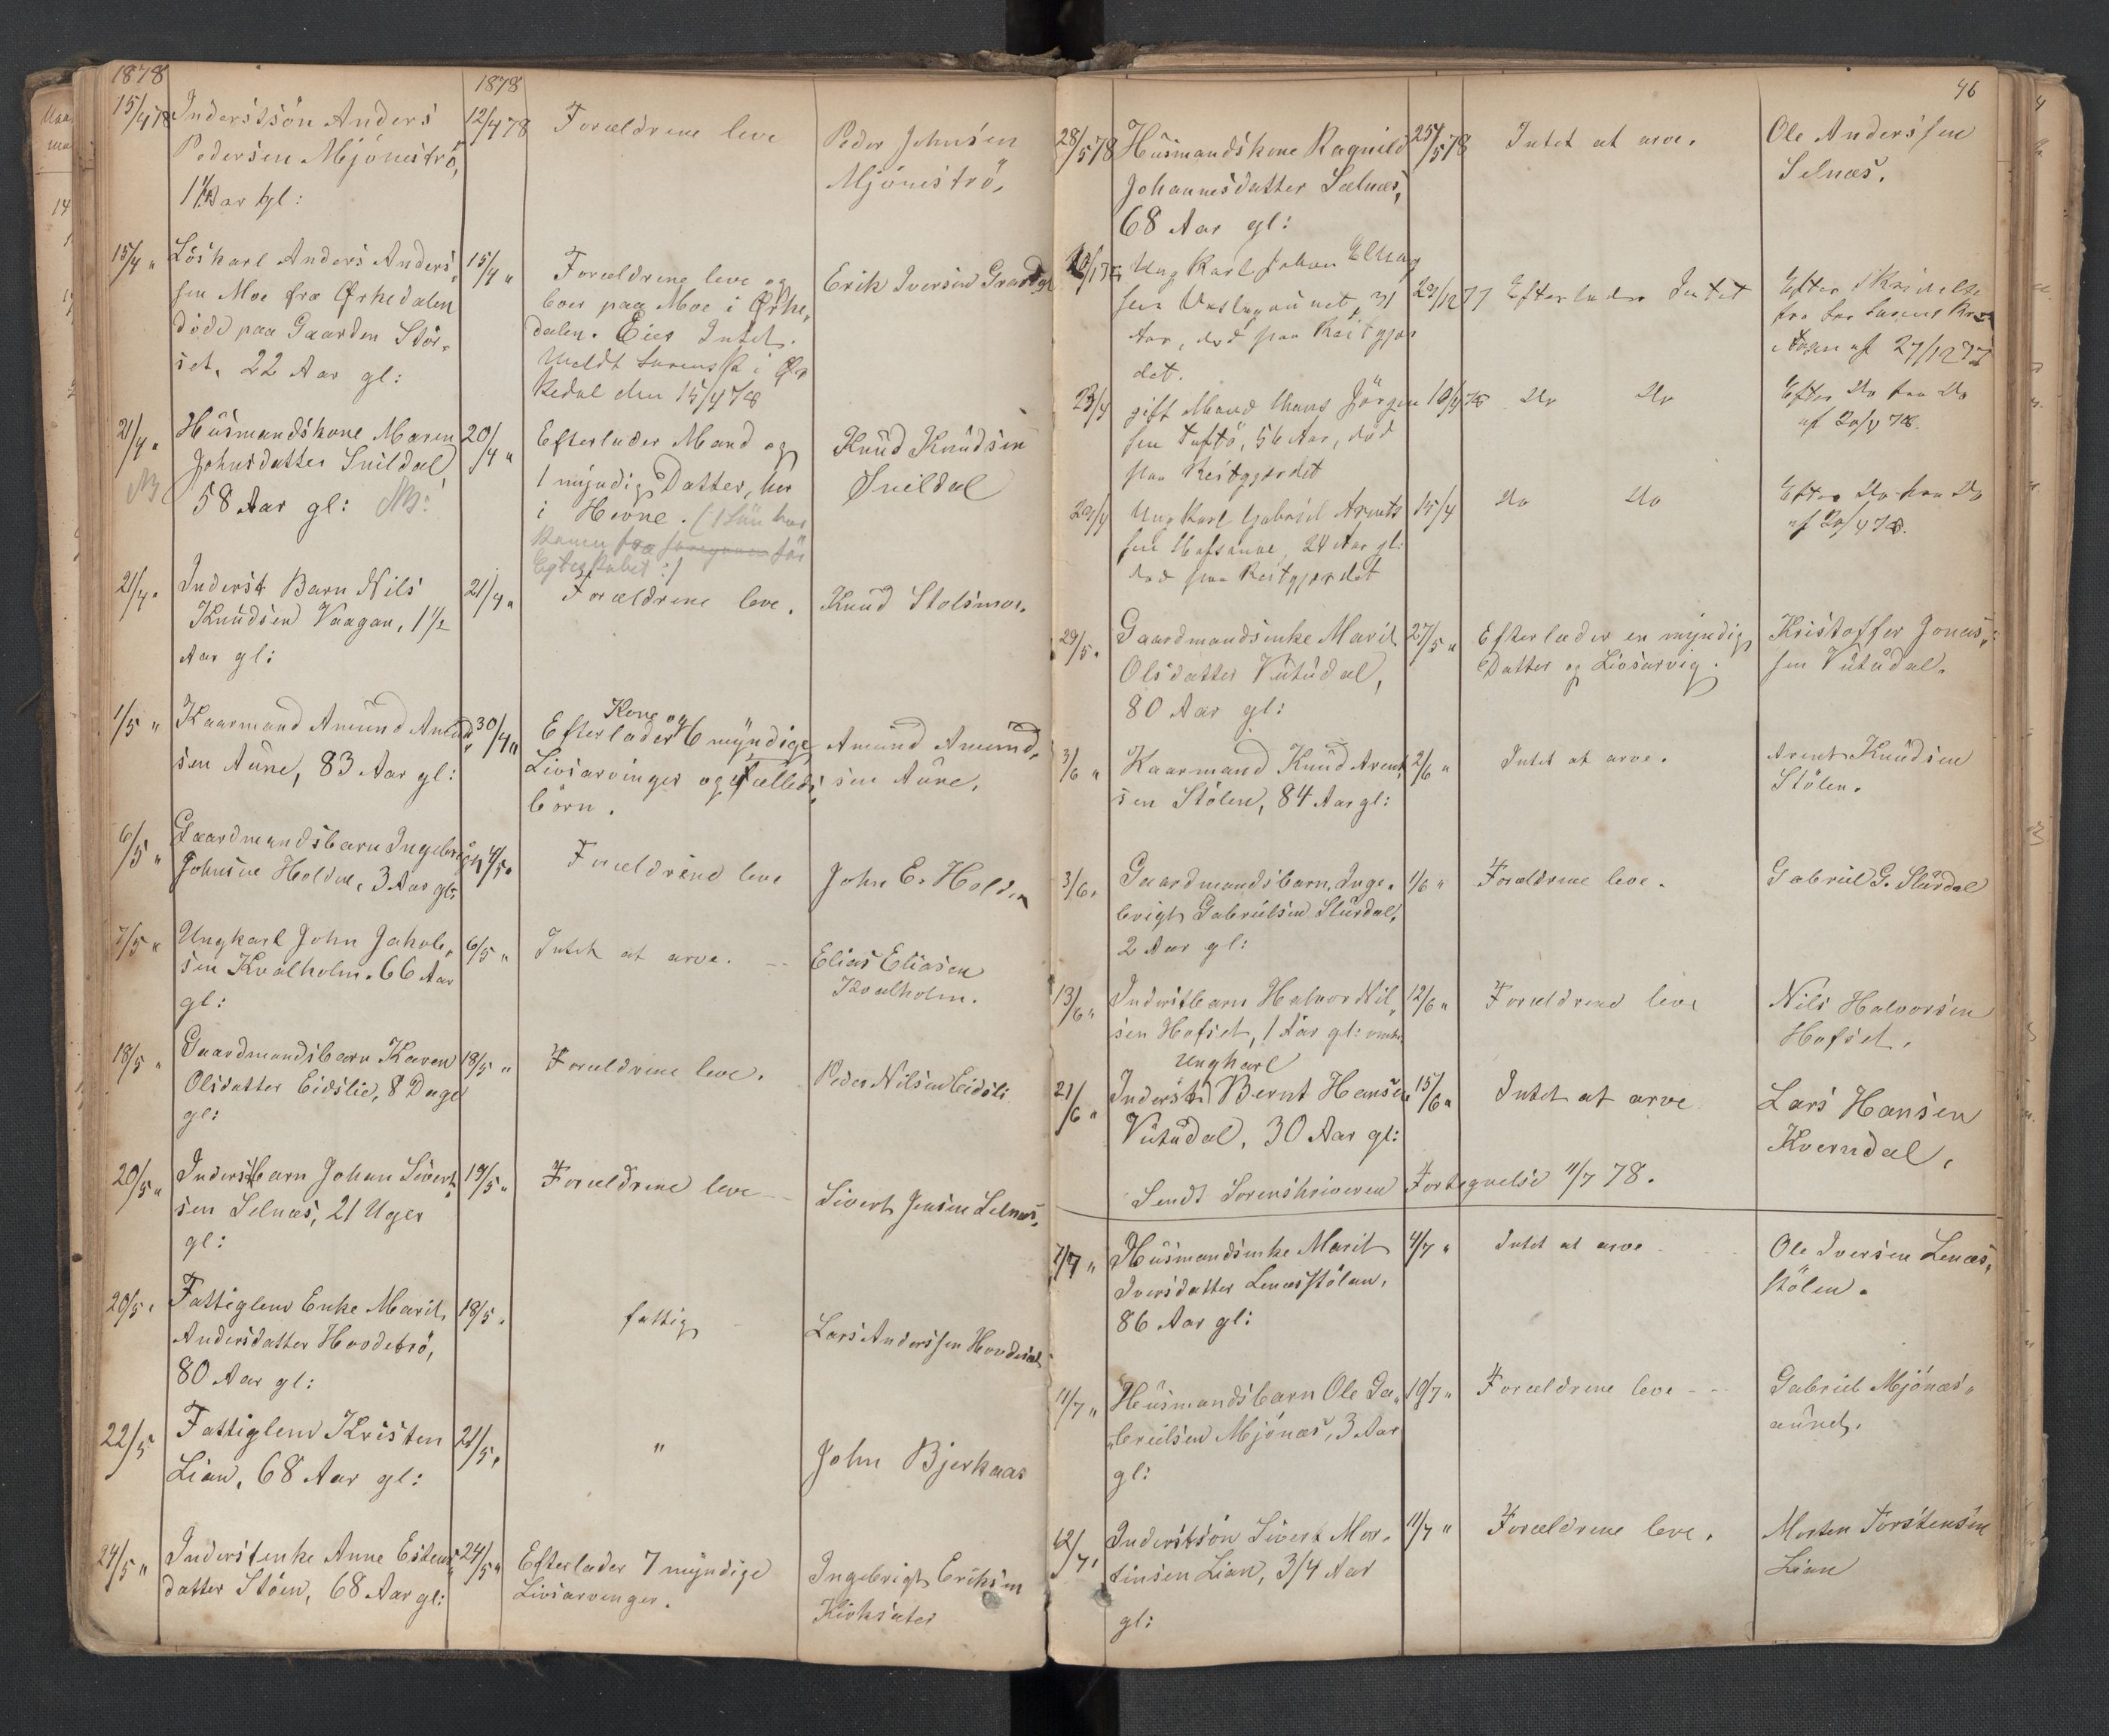 1878
1878
15/4 78 Inderstsön Anders 12/4 78 Forældrene leve Peder Johnsen
Pedersen Mjöneströ, Mjöneströ,
1 1/2 Aar gl:
15/4 " Löskarl Anders Anders- 15/4 " Forældrene leve og Erik Iversen
sen Moe fra Ørkedalen boer paa Moe i Ørke-
döde paa Gaarden Stör- dalen. Eies Intet.
set, 22 Aar gl: Meldt Sorensk. i Ør
kedal den 15/4 78
21/4 " Husmandskone Maren 20/4 " Efterlader Mand og Knud Knudsen
NB Johnsdatter Snildal, 1 myndig Datter, her Snildal
58 Aar gl: NB! i Hevne. (1 Sön har
Konen fra för
Egteskabet :)
21/4 " Inderst Barn Nils 21/4 " Forældrene leve. Knud Stolsmo.
Knudsen Vaagan, 1 1/2
Aar gl:
1/5 " Kaarmand Amund 30/4 " Efterlader Kone og 6 myndige Amund Amund-
sen Aune, 83 Aar gl: Livsarvinger og fælleds sen Aune,
börn.
6/5 " Gaardmandsbarn Ingebrigt 4/5 " Forældrene leve John E. Holden
Johnsen Holden, 3 Aar gl:
7/5 " Ungkarl John Jakob- 6/5 " Intet at arve. -- Elias Eliasen
sen Kvalholm. 66 Aar Kvalholm.
gl:
18/5 " Gaardmandsbarn Karen 18/5 " Forældrene leve. Peder Nilsen Eidsli
Olsdatter Eidslie, 8 Dage
gl:
20/5 " Inderstbarn Johan Sivert 19/5 " Forældrene leve -- Sivert Jensen Selnæs,
sen Selnæs, 21 Uger
gl:
20/5 " Fattiglem Enke Marit 18/5 " fattig - Lars Anderssen
Andersdatter Hovdetrö,
80 Aar gl:
22/5 Fattiglem Kristen 21/5 " " John Bjerkaas
Lian, 68 Aar gl:
24/5 " Inderstenke Anne Estens 24/5 " Efterlader 7 myndige Ingebrigt Eriksen
datter Stöen, 68 Aar gl: Livsarvinger. Kirksæter
46
28/5 78 Husmandskone Ragnild 25/5 78 Intet at arve. Ole Anderssen
Johannesdatter Sælnæs, Selnæs.
68 Aar gl:
Ungkarl Johan 29/12 77 Efterlader Intet Efter Skrivelse
sen 31 fra
Aar, död paa Reitgjær af 27/12 77
det.
23/4 gift Mand Hans Jörgen 10/4 78 Do Do Efter Do fra Do
sen Tuftö, 56 Aar, död af 20/4 78.
paa Reitgjerdet
23/4 Ungkarl Gabriel Arents 15/4 Do Do Efter Do fra Do
sen 24 Aar gl: af 20/4 78.
död paa Reitgjerdet
29/5 " Gaardmandsenke Marit 27/5 " Efterlader en myndig Kristoffer Jonas-
Olsdatter Vutudal, Datter og Livsarving. sen Vutudal.
80 Aar gl:
3/6 " Kaarmand Knud Arent 2/6 " Intet at arve. Arent Knudsen
sen Stölen, 84 Aar gl: Stölen.
3/6 " Gaardmandsbarn, Inge- 1/6 " Forældrene leve. Gabriel G. Slurdal
brigt Gabrielsen Slurdal,
2 Aar gl:
13/6 " Inderstbarn Halvor Nil- 12/6 " Forældrene leve Nils Halvorsen
sen Hofset, 1 Aar gl: omtr. Hofset.
Ungkarl
21/6 " Inderst Bernt Hansen 15/6 " Intet at arve Lars Hansen
Vutudal, 30 Aar gl: Kverndal,
Sendt Sorenskriveren Fortegnelse 11/7 78.
7/7 " Husmandsenke Marit 4/7 " Intet at arve - Ole Iversen Lenæs,
Iversdatter Lenæsstölan, stölen.
86 Aar gl:
11/7 " Husmandsbarn Ole Ga- 10/7 " Forældrene leve -- Gabriel Mjönæs-
brielsen Mjönæs, 3 Aar aunet.
gl:
12/7 " Inderstsön Sivert Mor- 11/7 " Forældrene leve. Morten Torstensen
tinsen Lian, 3/4 Aar Lian
gl: